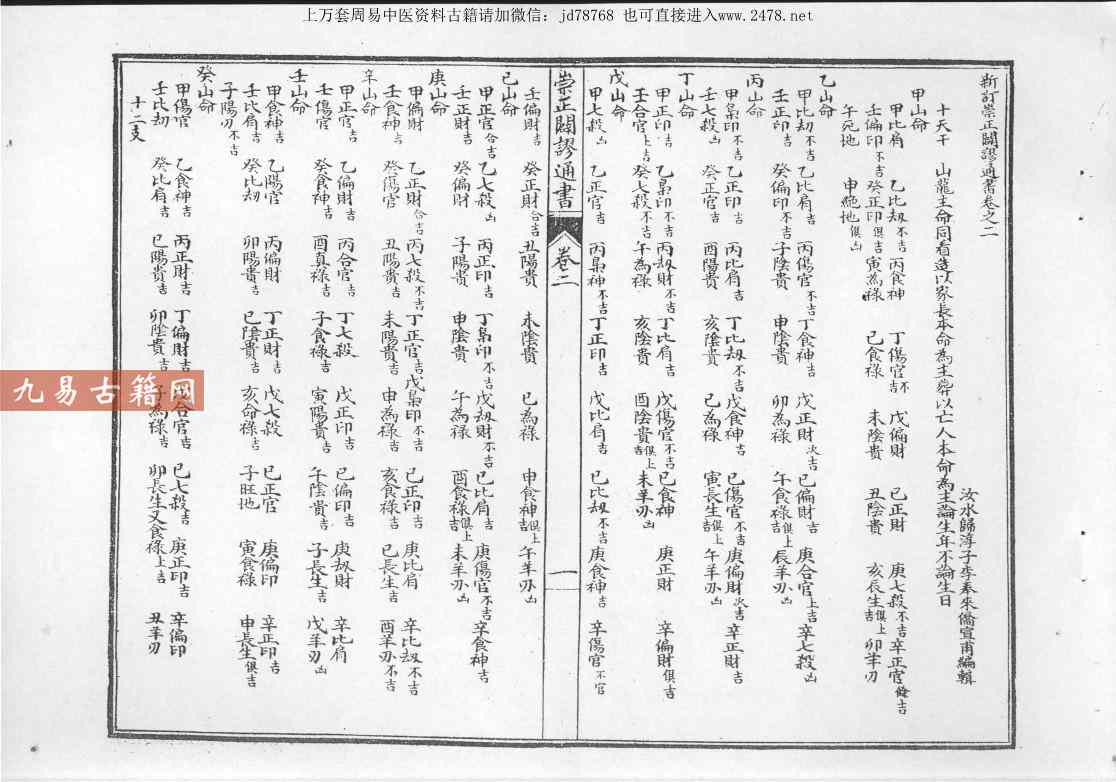 上万套周易中医资料古籍请加微信：jd78768 也可直接进入www.2478.net
新訂崇正闢謬通書卷之二
汝水歸淳子李奉來儋宣甫編輯
十天干 山龍主命同看造以家長本命為主葬以亡人本命為主論生年不論生日
甲山命
甲比肩 乙比刼不吉 丙食神 丁傷官不吉 戊偏財 己正財 庚七殺不吉 辛正官俻吉
壬偏印不吉 癸正印俱吉 寅為祿 己食祿 未陰貴 丑陰貴 亥長生俱上吉 卯羊刃
午死地 申絶地俱凶
乙山命
甲比刼不吉 乙比肩吉 丙傷官不吉 丁食神吉 戊正財次吉 己偏財吉 庚合官上吉 辛七殺凶
壬正印吉 癸偏印不吉 子陰貴 申陰貴 卯為祿 午食祿俱上吉 辰羊刅凶
丙山命
甲梟印不吉 乙正印吉 丙比肩吉 丁比刼不吉 戊食神吉 己傷官不吉 庚偏財次吉 辛正財吉
壬七殺凶 癸正官吉 酉陽貴 亥陰貴 已為祿 寅長生俱上吉 午羊刅凶
丁山命
甲正印吉 乙梟印不吉 丙刼財不吉 丁比肩吉 戊傷官不吉 己食神 庚正財 辛偏財俱吉
壬合官上吉 癸七殺不吉 午為祿 亥陰貴 酉陰貴俱上吉 未羊刅凶
戊山命
甲七殺凶 乙正官吉 丙梟神不吉 丁正印吉 戊比肩吉 己比刼不吉 庚食神吉 辛傷官不官
壬偏財吉 癸正財合吉 丑陽貴 未陰貴 已為祿 申食神俱上吉 午羊刅凶
崇正闢謬通書 卷二 一
己山命
甲正官合吉 乙七殺凶 丙正印吉 丁梟印不吉 戊刼財不吉 己比肩吉 庚傷官不吉 辛食神吉
壬正財吉 癸偏財 子陽貴 申陰貴 午為祿 酉食祿俱上吉 未羊刅凶
庚山命
甲偏財 乙正財合吉 丙七殺不吉 丁正官吉 戊梟印不吉 己正印吉 庚比肩 辛比刼不吉
壬食神吉 癸傷官 丑陽貴吉 未陽貴吉 申為祿吉 亥食祿吉 已長生吉 酉羊刅不吉
辛山命
甲正官吉 乙偏財吉 丙合官吉 丁七殺 戊正印吉 己偏印吉 庚刼財 辛比肩
壬傷官 癸食神吉 酉真祿吉 子食祿吉 寅陽貴吉 午陰貴吉 子長生吉 戊羊刃凶
壬山命
甲食神吉 乙陽官 丙偏財 丁正財吉 戊七殺 己正官 庚偏印 辛正印吉
壬比肩吉 癸比刼 卯陽貴吉 已陰貴吉 亥命祿吉 子旺地 寅食祿 申長生俱吉
子陽刃不吉
癸山命
甲傷官 乙食神吉 丙正財吉 丁偏財吉 合官吉 己七殺吉 庚正印吉 辛偏印
壬比刼 癸比肩吉 已陽貴吉 卯陰貴吉 子為祿吉 卯長生又食祿上吉 丑羊刃
十二支
九易古籍网